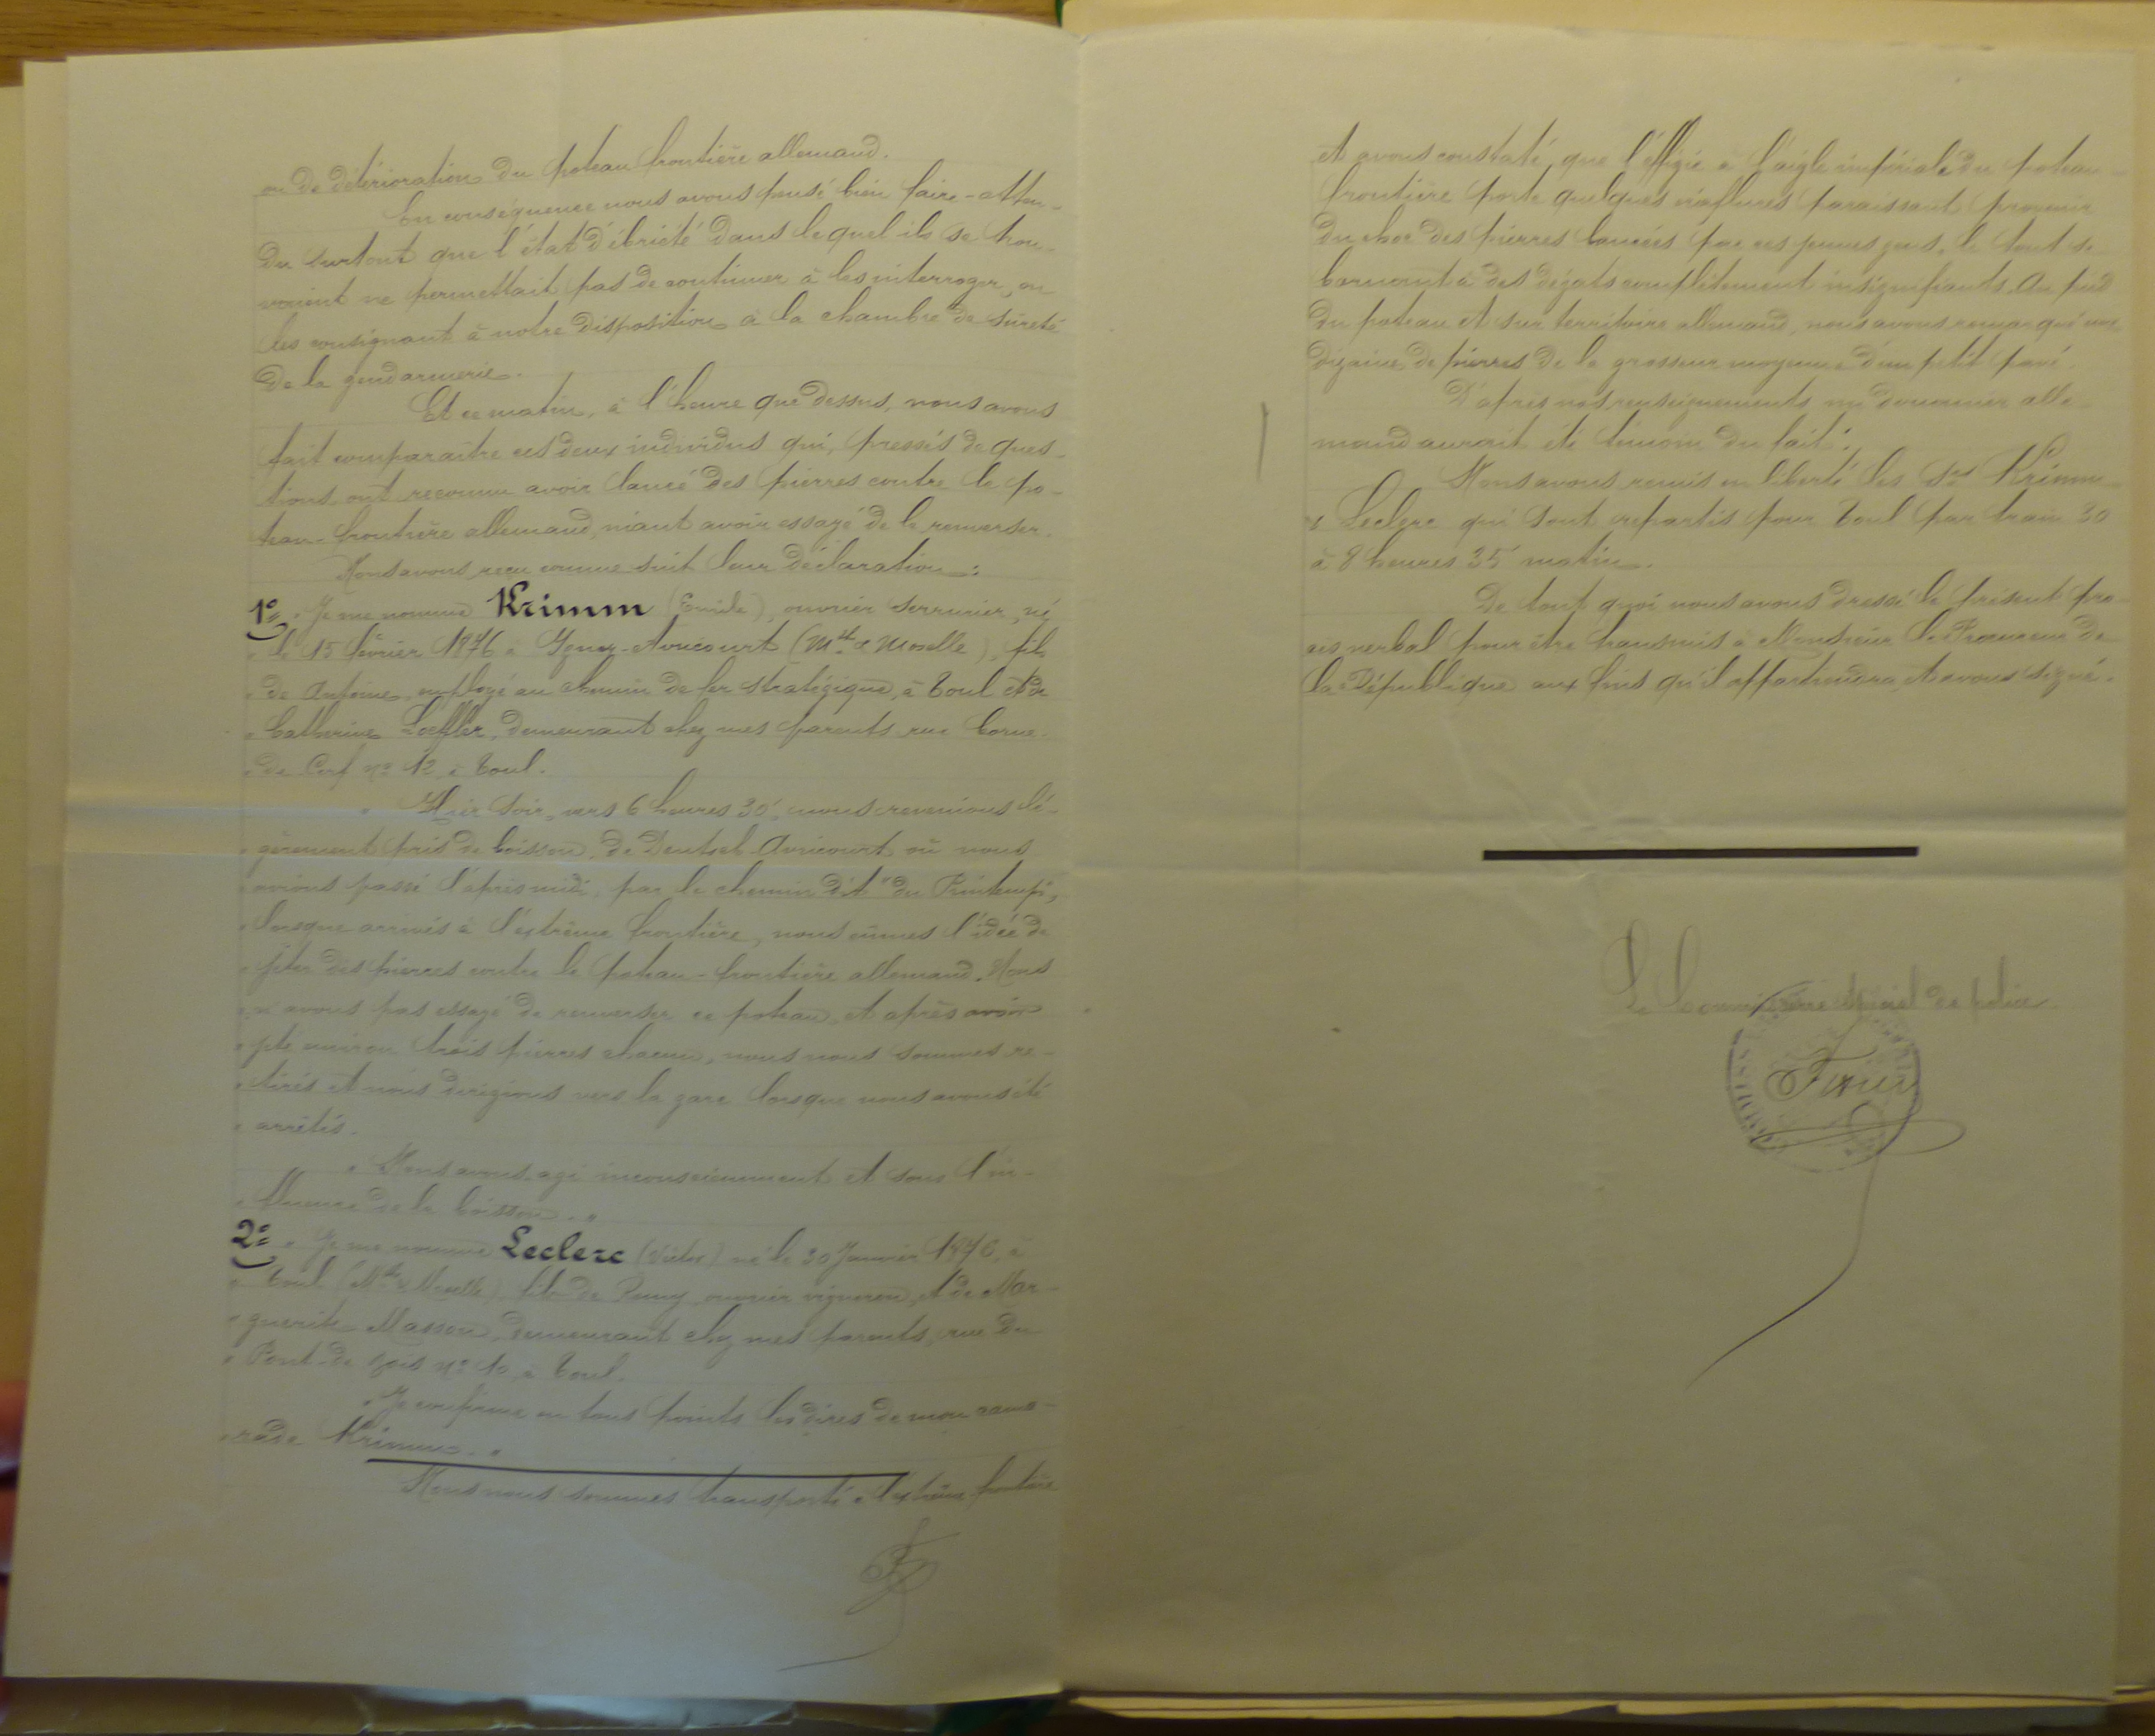 ou de détérioration du poteau frontière allemand.
En conséquence nous avons pensé bien faire - atten-
du surtout que l'état d'ébriété dans lequel ils se trou-
vaient ne permettait pas de continuer à les interroger, en
les consignant à notre disposition à la chambre de sûreté
de la gendarmerie.
Et ce matin, à l'heure que dessus, nous avons
fait comparaître ces deux individus qui, pressés de ques-
tions, ont reconnu avoir lancé des pierres contre le po-
teau-frontière allemand, niant avoir essayé de le renverser.
Nous avons reçu comme suit leur déclaration :
1° " Je me nomme Krimm (Emile), ouvrier serrurier, né
" le 15 février 1876 à Igney-Avricourt (Mthe & Moselle), fils
" de Antoine, employé au chemin de fer stratégique, à Toul et de
" Catherine Loeffler, demeurant chez mes parents rue Corne-
" de Cerf n° 12, à Toul.
" Hier soir, vers 6 heures 30', nous revenions lé-
" gèrement pris de boisson, de Deutsch-Avricourt où nous
" avions passé l'après midi, par le chemin dit "du Printemps",
" lorsque arrivés à l'extrême frontière, nous eûmes l'idée de
" jeter des pierres contre le poteau-frontière allemand. Nous
" n'avons pas essayé de renverser ce poteau, et après avoir
" jeté environ trois pierres chacun, nous nous sommes re-
" tirés et nous dirigions vers la gare lorsque nous avons été
" arrêtés.
" Nous avons agi inconsciemment et sous l'in-
" fluence de la boisson. "
2° " Je me nomme Leclerc (Victor) né le 30 Janvier 1876, à
" Toul (Mthe & Moselle), fils de Remy, ouvrier vigneron, et de Mar-
" guerite Masson, demeurant chez mes parents, rue du
" Pont-de Bois n° 10, à Toul.
" Je confirme en tous points les dires de mon cama-
" rade Krimm. "
Nous nous sommes transporté à l'extrême frontière
et avons constaté que l'effigie à l'aigle impériale du poteau-
frontière porte quelques éraflures paraissant provenir
du choc des pierres lancées par ces jeunes gens, le tout se
bornant à des dégats complètement insignifiants. Au pied
du poteau et sur territoire allemand, nous avons remarqué une
dizaine de pierres de la grosseur moyenne d'un petit pavé.
D'après nos renseignements un douanier alle-
mand aurait été témoin du fait.
Nous avons remis en liberté les Srs Krimm
& Leclerc qui sont repartis pour Toul par train 30
à 8 heures 35 matin.
De tout quoi nous avons dressé le présent pro-
cès verbal pour être transmis à Monsieur le Procureur de
la République aux fins qu'il appartiendra, et avons signé.
Le Commissaire spécial de police.